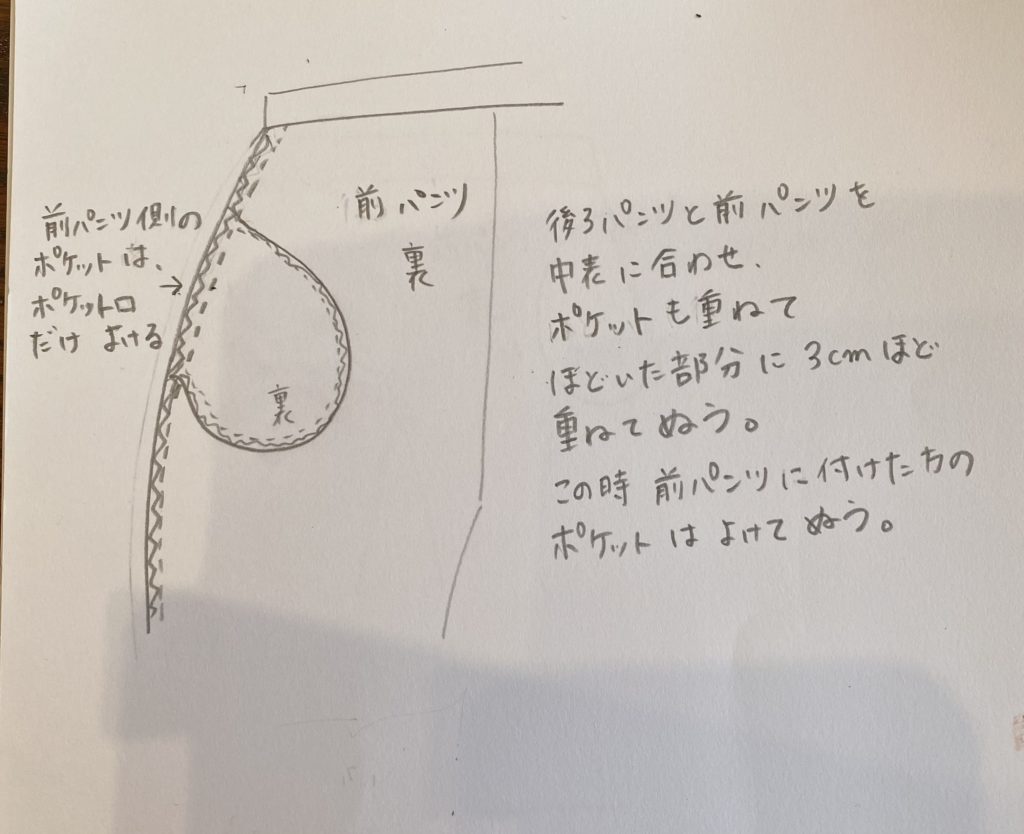 前パンツ側の
ポケットは、
ポケット口
だけよける
前パンツ
裏
裏
後ろパンツと前パンツを
中表に合わせ、
ポケットも重ねて
ほどいた部分に3cmほど
重ねてぬう。
この時前パンツに付けた方の
ポケットはよけてぬう。